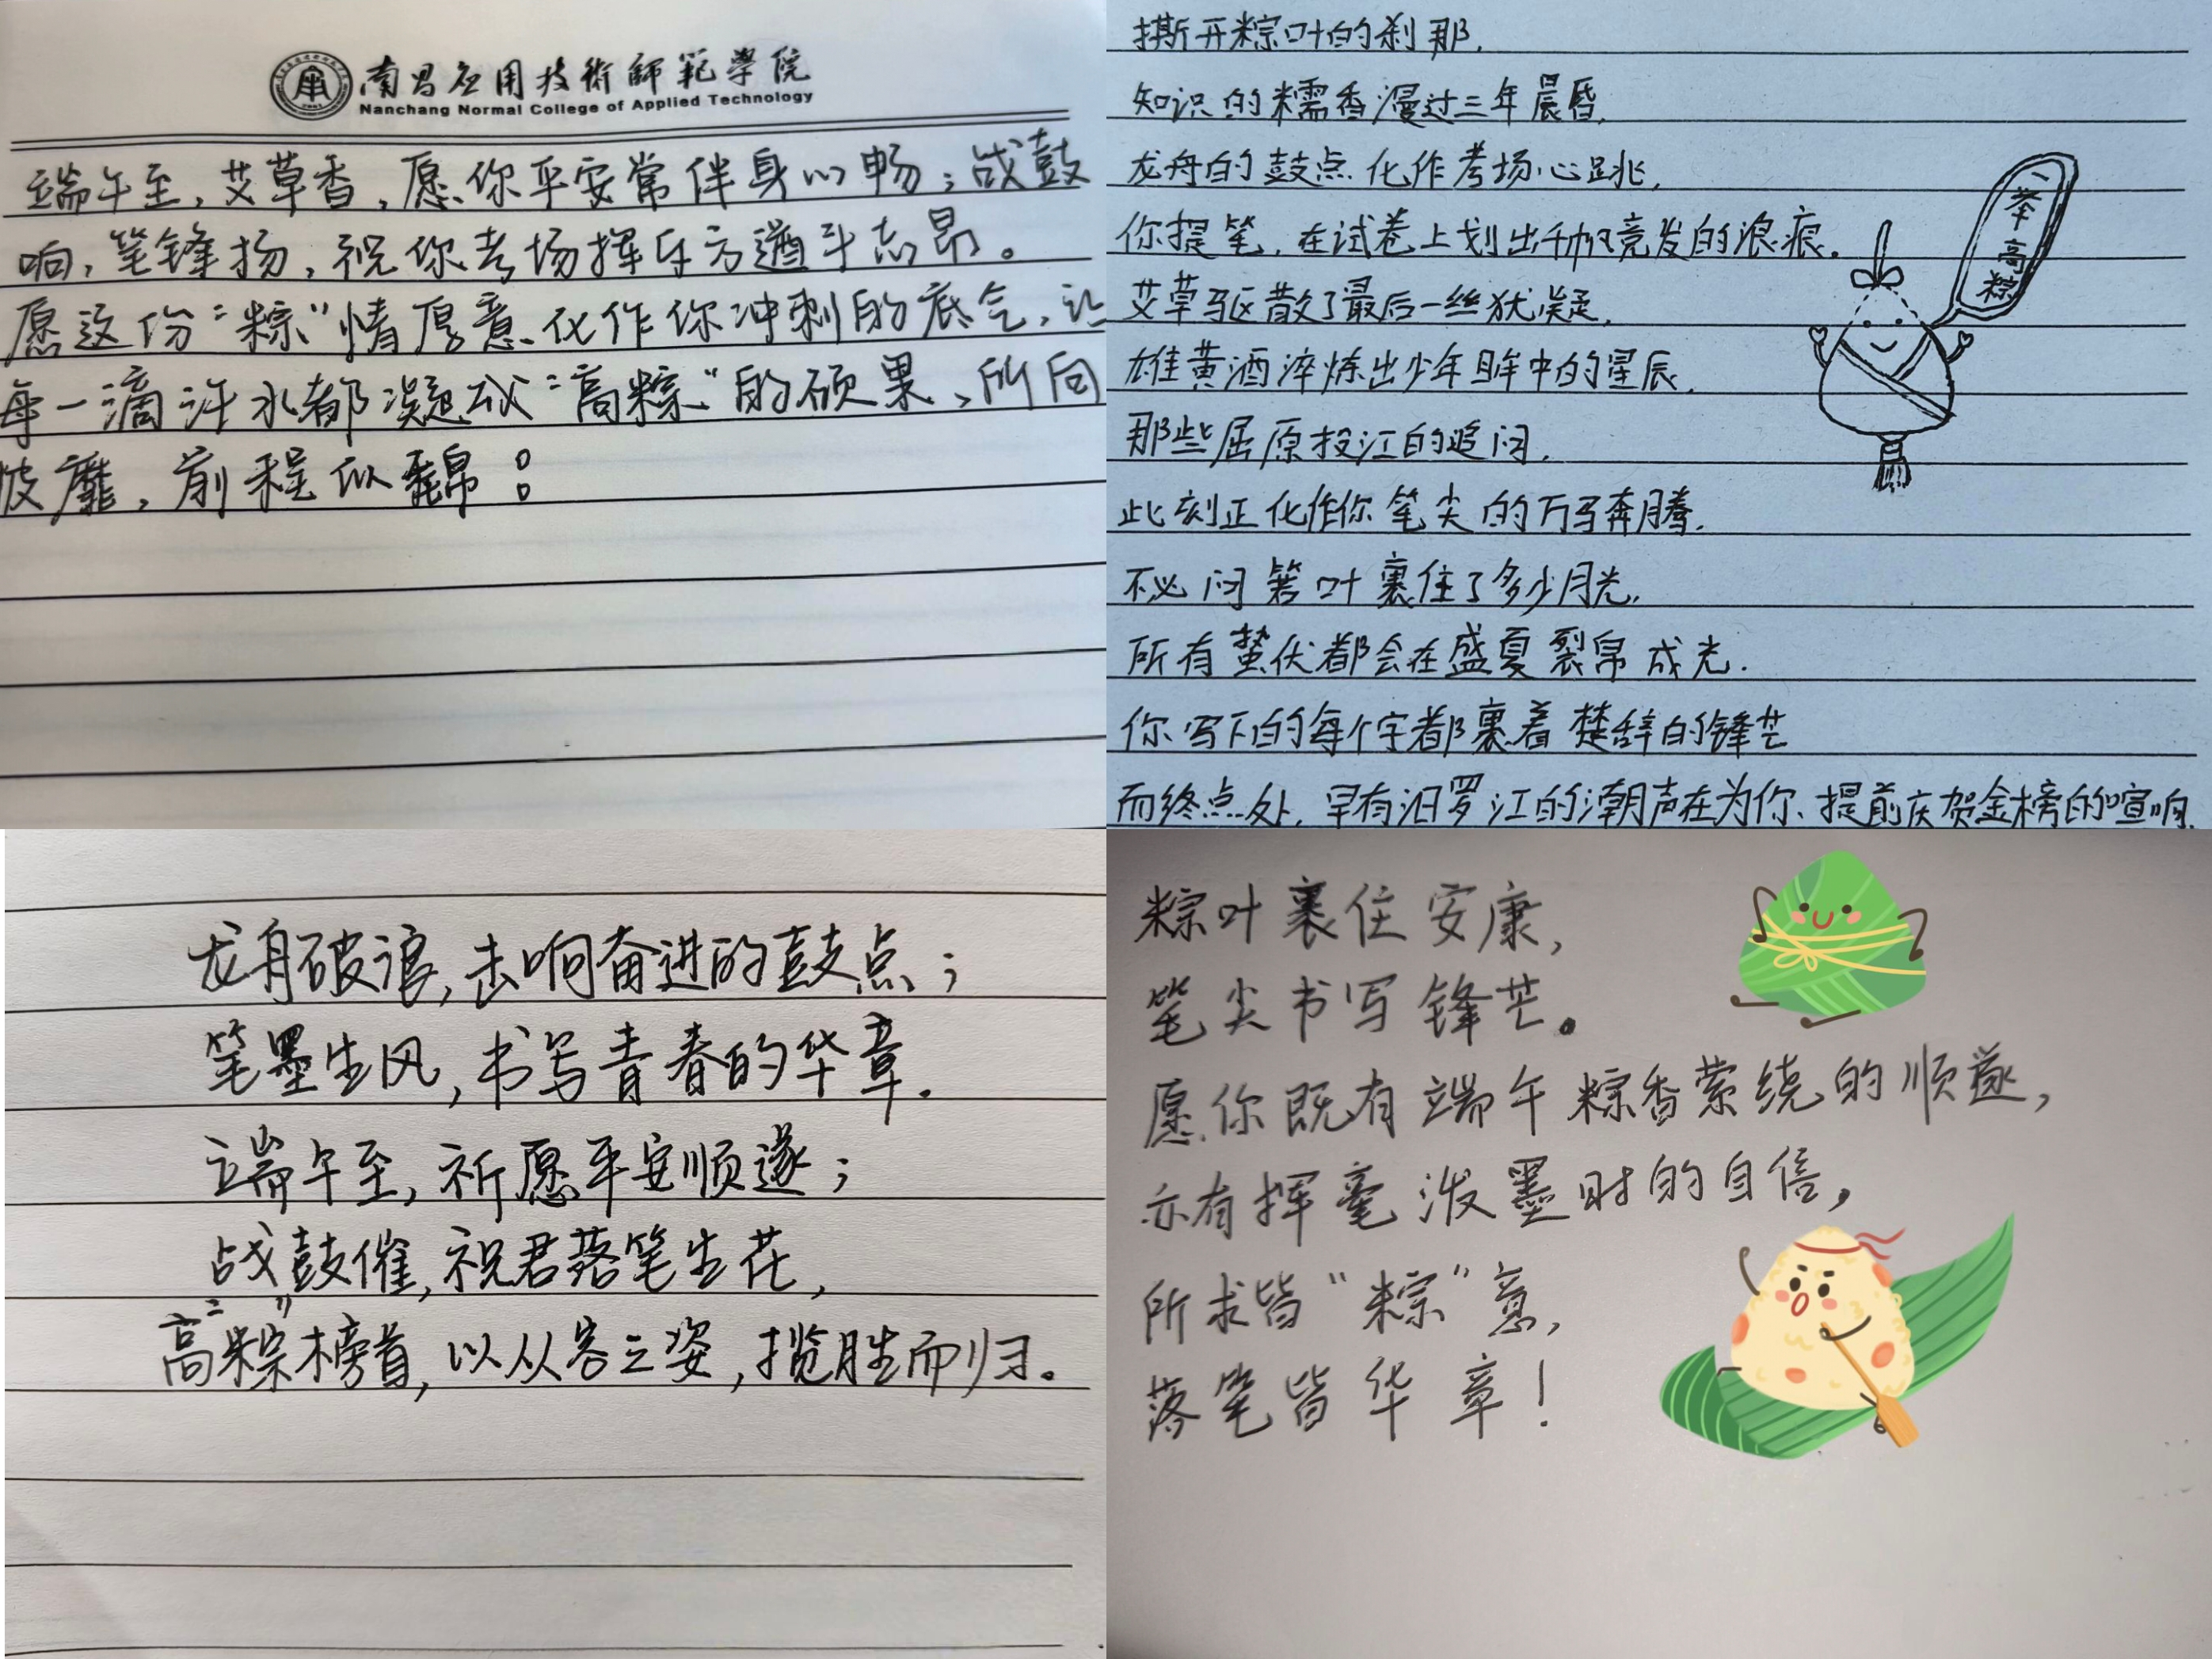 南昌应用技術師範學院
Nanchang Normal College of Applied Technology
端午至，艾草香，愿你平安常伴身心畅；战鼓
响，笔锋扬，祝你考场挥斥方遒斗志昂。
愿这份“粽”情厚意化作你冲刺的底气，让
每一滴汗水都凝成“高粽”的硕果、所向
披靡，前程似锦！
撕开粽叶的刹那，
知识的糯香漫过三年晨昏，
龙舟的鼓点化作考场心跳，
你提笔，在试卷上划出千帆竞发的浪痕。
艾草驱散了最后一丝犹凝，
雄黄酒淬炼出少年眸中的星辰，
那些屈原投江的追问，
此刻正化作你笔尖的万马奔腾，
不必问箬叶裹住了多少月光，
所有蛰伏都会在盛夏裂帛成光．
你写下的每个字都裹着楚辞的锋芒
而终点处，早有汨罗江的潮声在为你、提前庆贺金榜的喧响．
一举高粽
龙舟破浪，击响奋进的鼓点；
笔墨生风，书写青春的华章．
端午至，祈愿平安顺遂；
战鼓催，祝君落笔生花，
“高粽”榜首，以从容之姿，揽胜而归。
粽叶裹住安康，
笔尖书写锋芒。
愿你既有端午粽香萦绕的顺遂，
亦有挥毫泼墨时的自信，
所求皆“粽”意，
落笔皆华章！